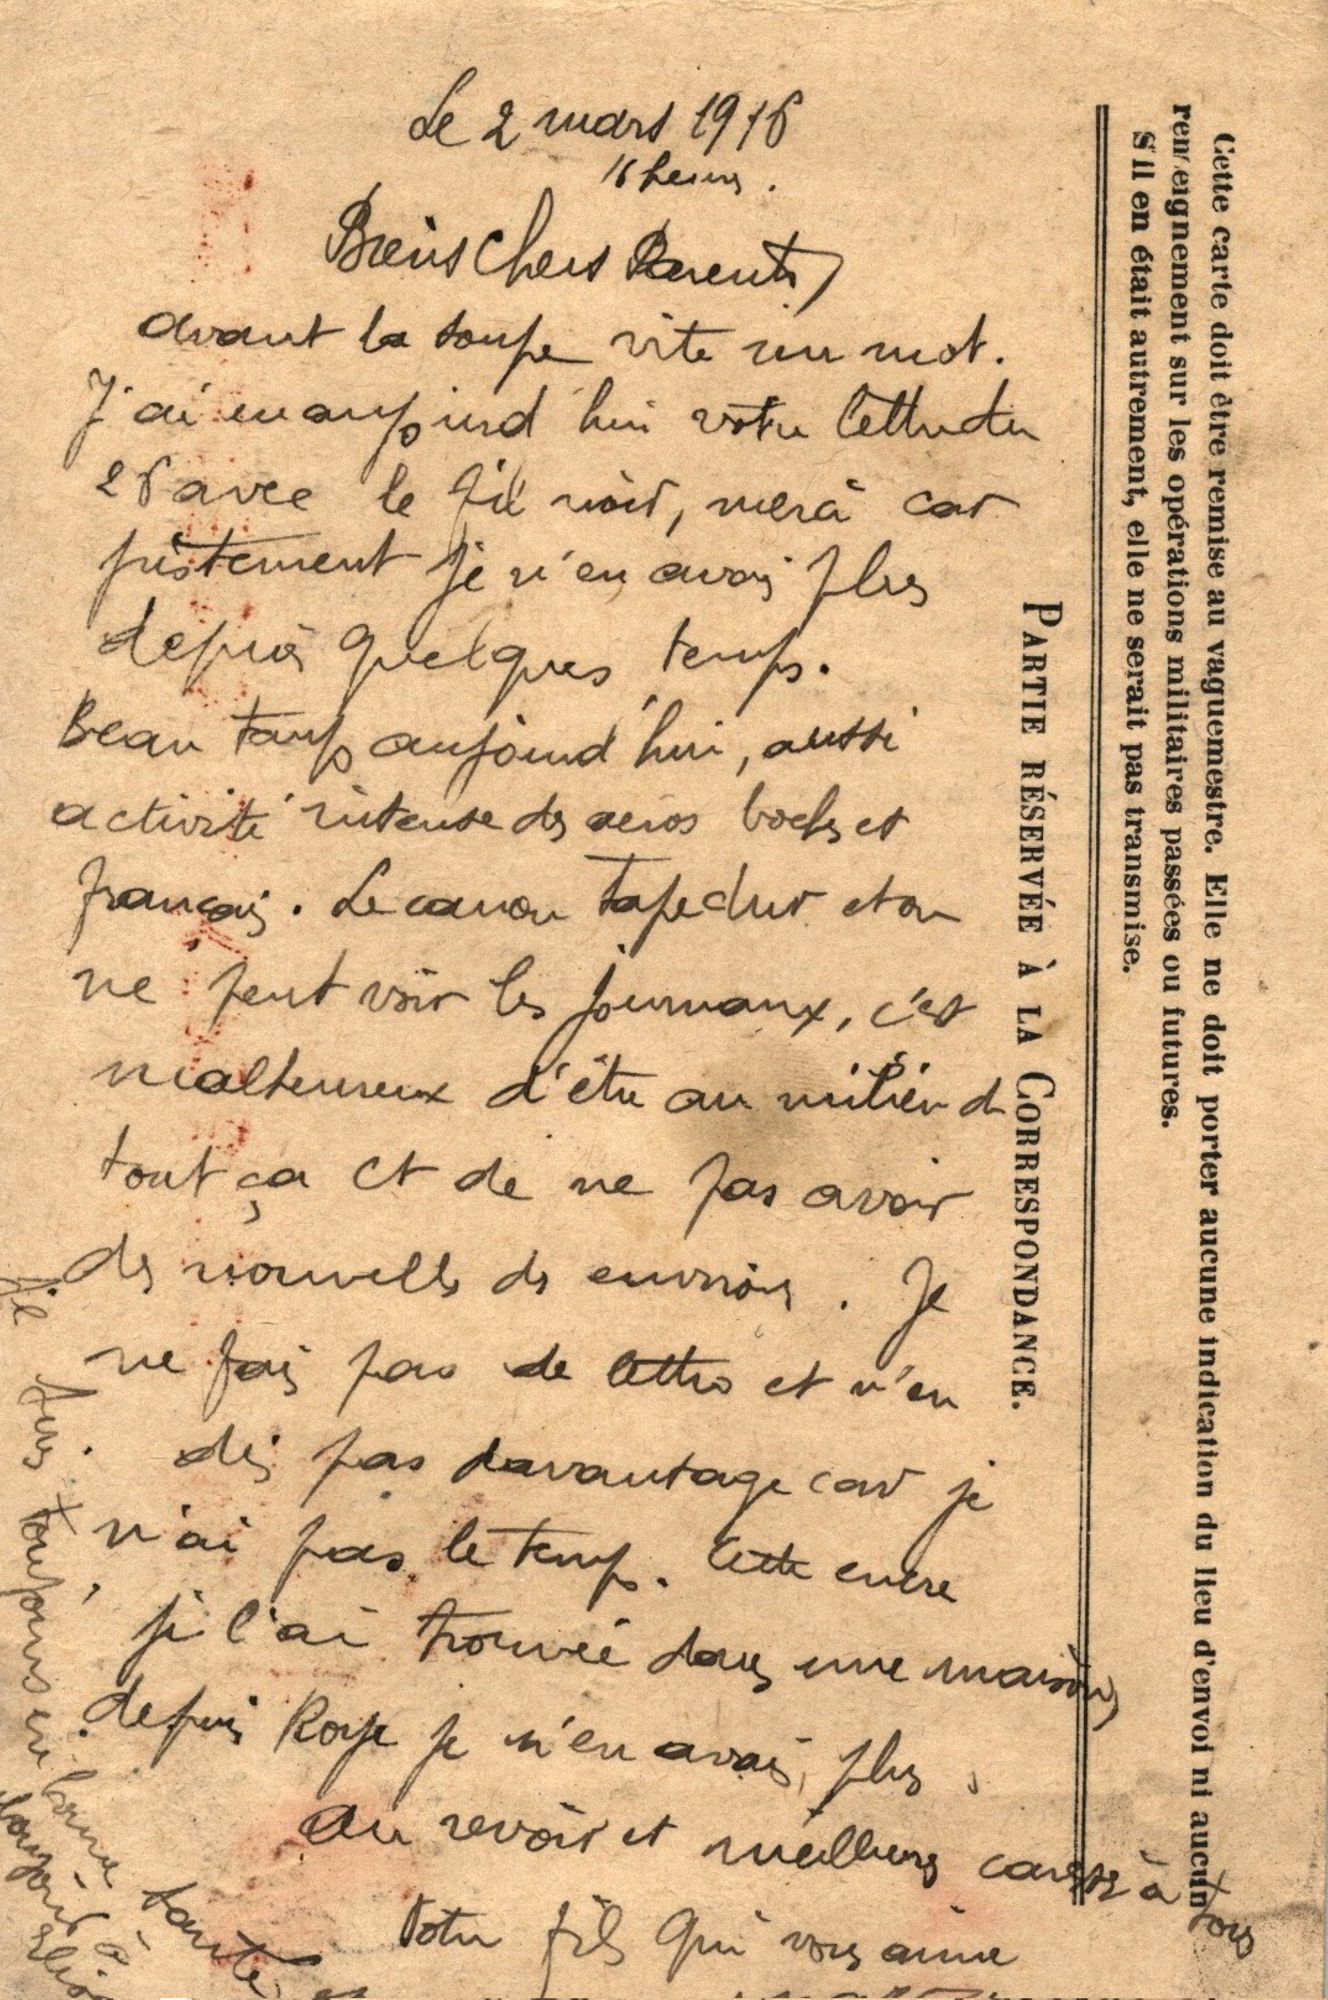 Le 2 mars 1916
16 heures.
Biens Chers Parents,
avant la soupe vite un mot.
J'ai eu aujourd'hui votre lettre du
26 avec le fil noir, merci car
justement je n'en avais plus
depuis quelques temps.
Beau temps aujourd'hui, aussi
activité intense des aéros boches et
français. Le canon tape dur et on
ne peut voir les journaux, c'est
malheureux d'être au milieu de
tout ça et de ne pas avoir
des nouvelles des environs. Je
ne fais pas de lettres et n'en
dis pas davantage car je
n'ai pas le temps. Cette encre
je l'ai trouvée dans une maison,
depuis Roye je n'en avais plus.
Au revoir et meilleurs caresses à tous
Votre fils qui vous aime
Je suis toujours en bonne santé
bonjour à
PARTIE RÉSERVÉE À LA CORRESPONDANCE.
Cette carte doit être remise au vaguemestre. Elle ne doit porter aucune indication du lieu d'envoi ni aucun
renseignement sur les opérations militaires passées ou futures.
S'il en était autrement, elle ne serait pas transmise.